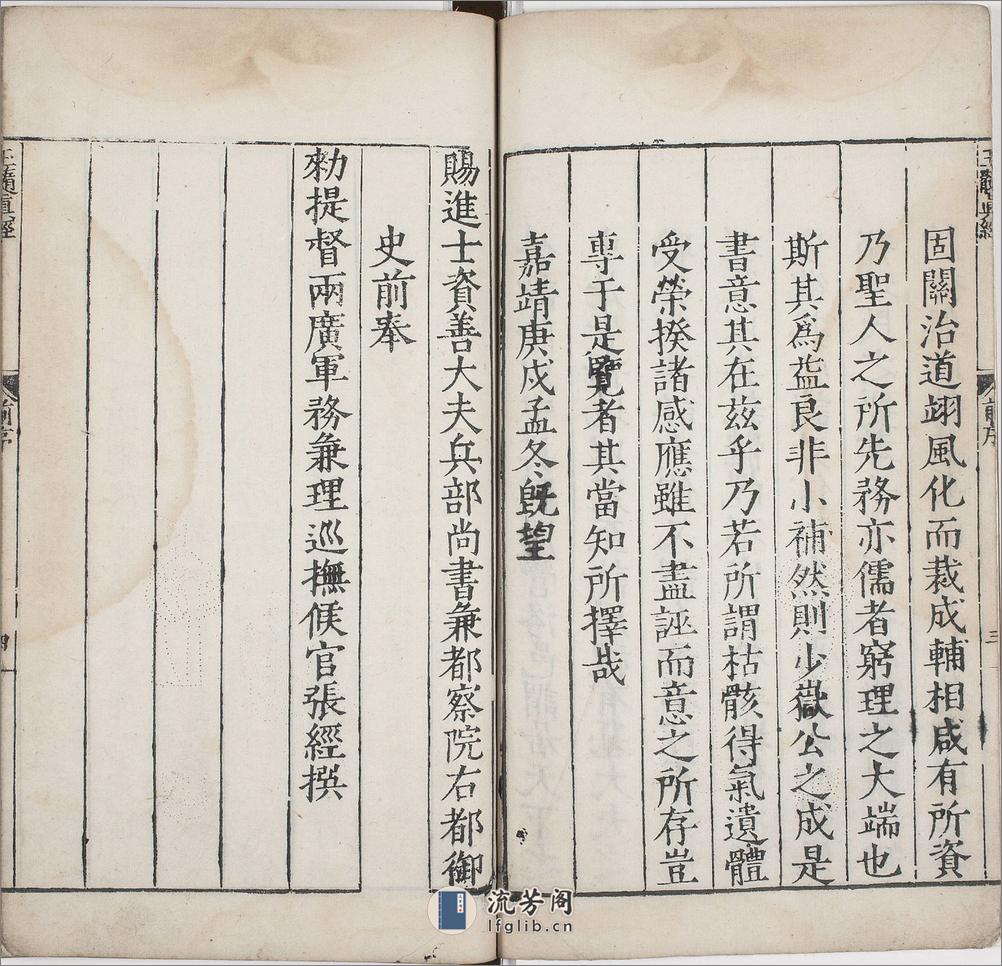 玉髓真經
前序
三
固關治道翊風化而裁成輔相咸有所資
乃聖人之所先務亦儒者窮理之大端也
斯其爲益良非小補然則少嶽公之成是
書意其在茲乎乃若所謂枯骸得氣遺體
受榮揆諸感應雖不盡誣而意之所存豈
專于是覽者其當知所擇哉
嘉靖庚戌孟冬既望
賜進士資善大夫兵部尚書兼都察院右都御
史前奉
勑提督兩廣軍務兼理巡撫候官張經撰
玉髓真經
前序
四
流芳阁
lfglib.cn